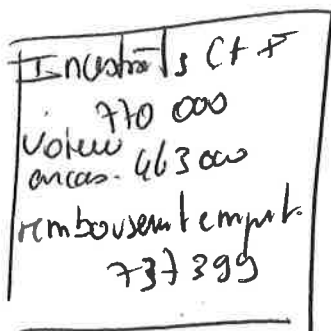 Investis Ct F
770 000
valeur
encas. 463 000
remboursem t emprt.
737 399